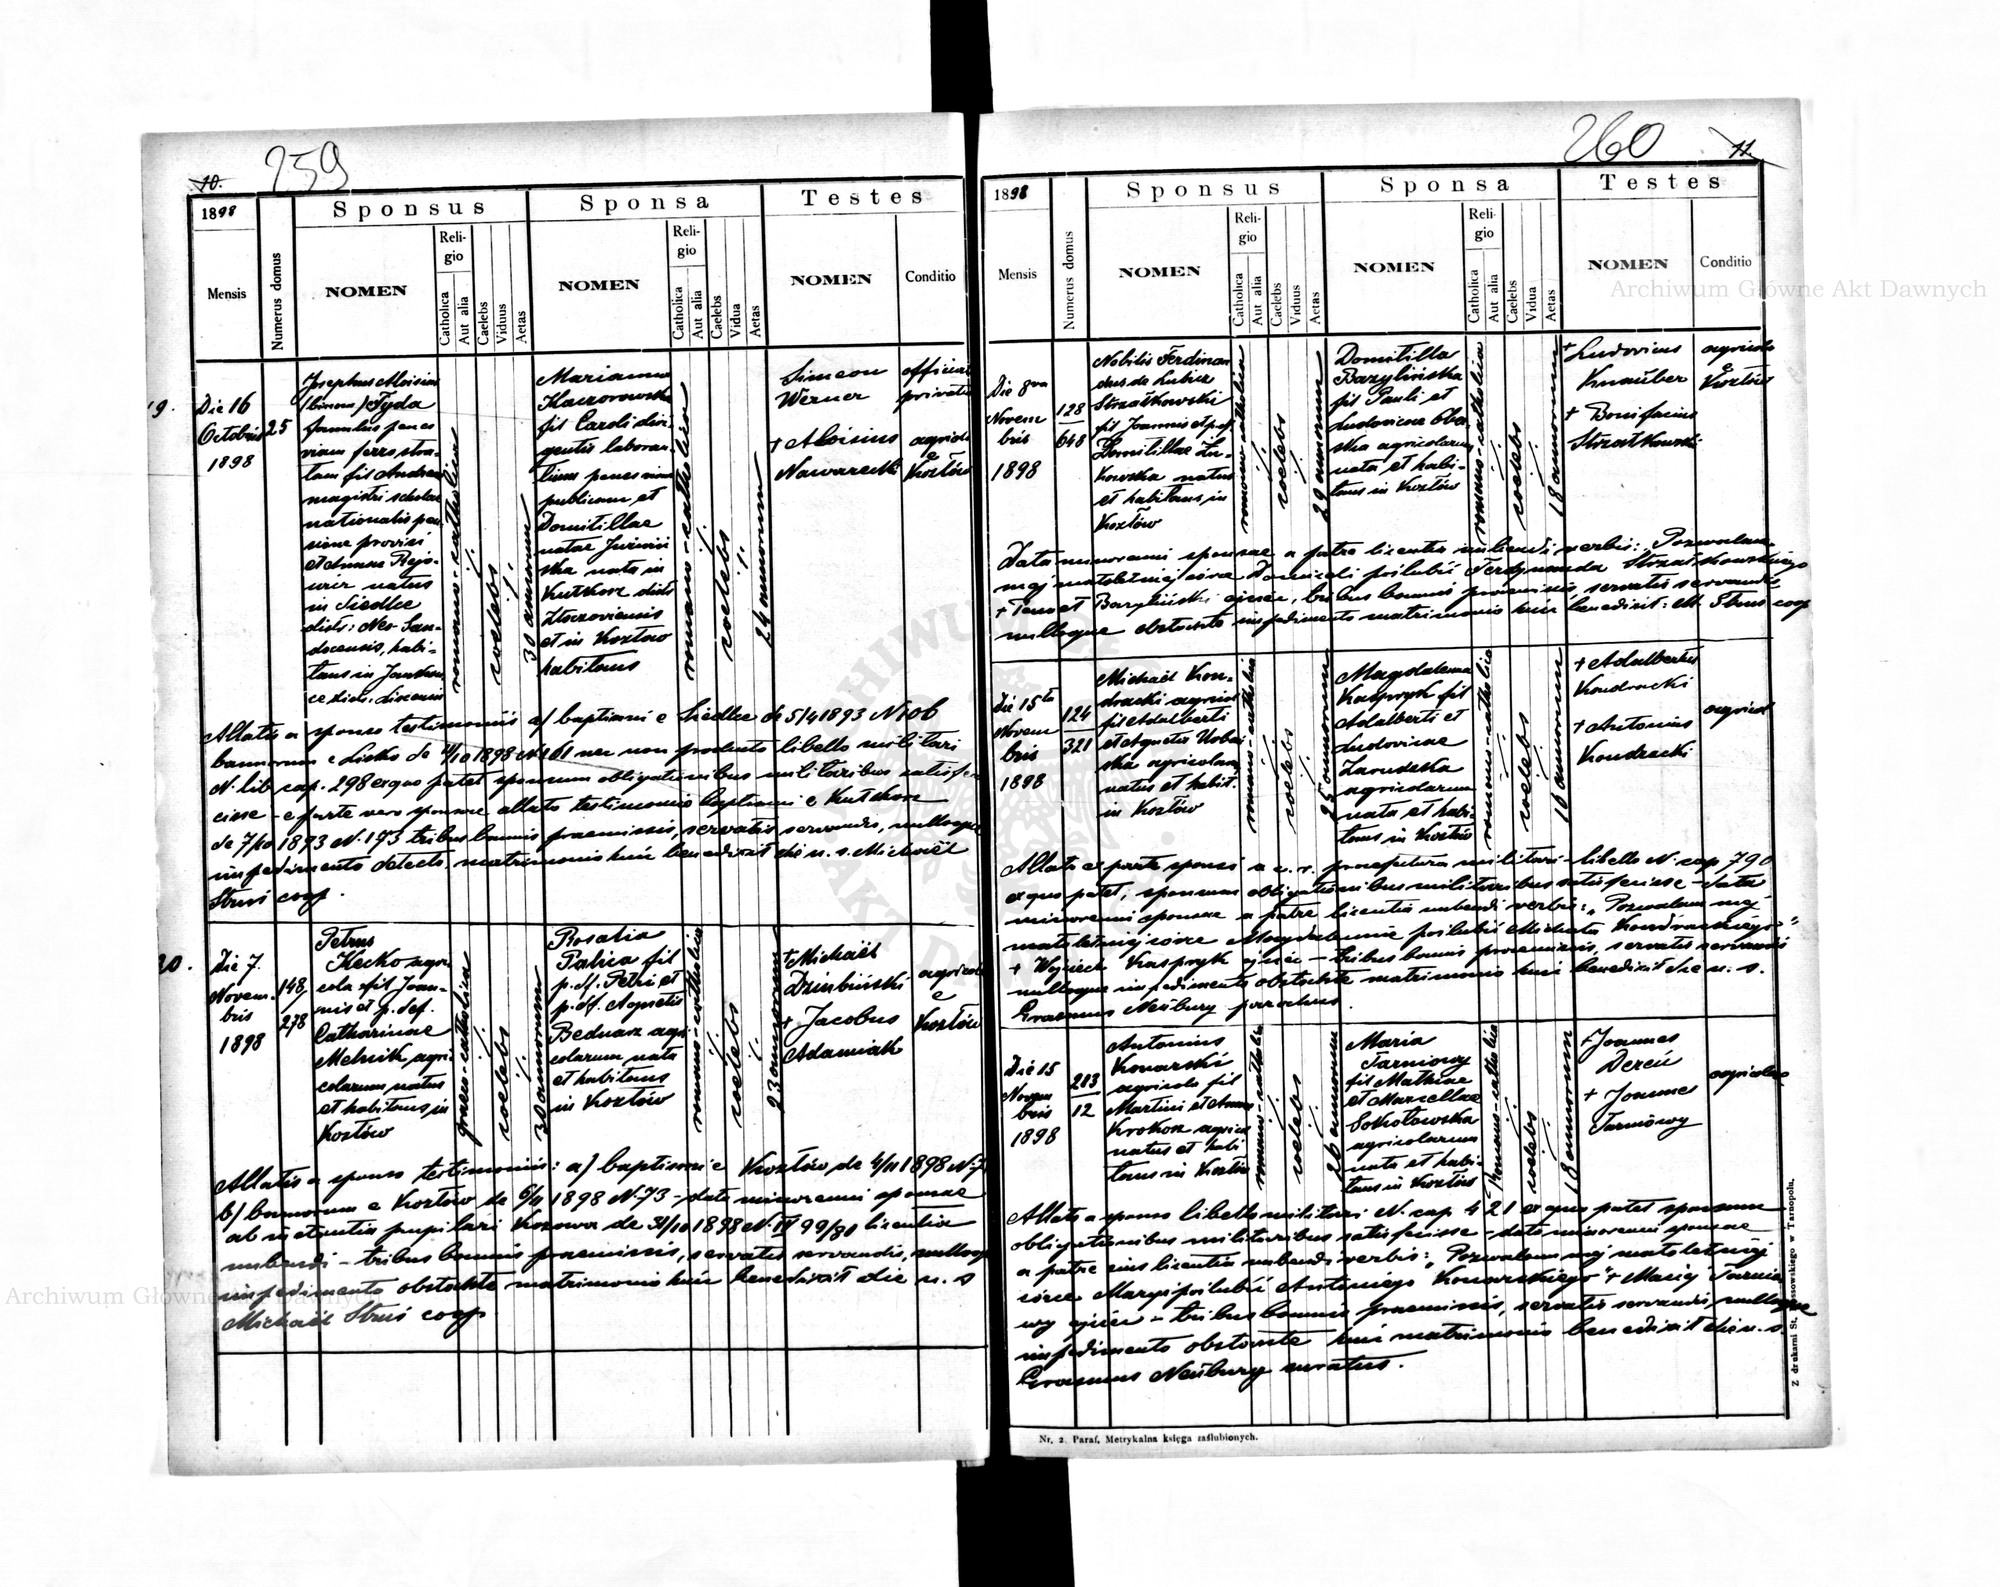 10.
259
1898
Numerus domus
Sponsus
Sponsa
Testes
Mensis
NOMEN
Religio
Catholica
Aut alia
Caelebs
Viduus
Aetas
NOMEN
Religio
Catholica
Aut alia
Caelebs
Vidua
Aetas
NOMEN
Conditio
19.
Die 16
Octobris
1898
25
Josephus Aloisius
/binom/ Tyda
famulus penes
viam ferro stra-
tam fil Andreae
magistri scholae
nationalis pen-
sione provisi
et Annae
natus
in Siedlce
distr: Neo San-
docensis, habi-
tans in
romano-catholica
coelebs
30 annorum
Marianna
Kaczorowska
fil Caroli diri-
gentis laboran-
tium penes viam
publicam et
Domitillae
natae
nata in
Kutkorz distr
Złoczoviensis
et in Kozłów
habitans
romano-catholica
coelebs
24 annorum
Simeon
Werner
+ Aloisius
Nawarecki
privatus
agricola
e
Kozłów
Allatis a sponso testimoniis a/ baptismi e Siedlce de 5/4 1893 N 106
bannorum e Lisko de 4/10 1898 N 161 nec non producto libello militari
N. lib cap. 298 ex quo patet sponsum obligationibus militaribus satisfe-
cisse - e parte vero sponsae allato testimonio baptismi e Kutkorz
de 7/10 1873 N. 173 tribus bannis praemissis, servatis servandis, nulloque
impedimento detecto, matrimonio huic benedixit die u. s. Michaël
Struś coop.
20.
Die 7.
Novem-
bris
1898
148/
278
Petrus
Kecko agri-
cola fil Joan-
nis et p. def.
Catharinae
Melnik agri-
colarum natus
et habitans in
Kozłów
graeco-catholica
coelebs
30 annorum
Rosalia
Palica fil
p. df. Petri et
p. df. Agnetis
Bednarz agri-
colarum nata
et habitans
in Kozłów
romano-catholica
coelebs
23 annorum
+ Michaël
Dziubiński
+ Jacobus
Adamiak
agricolae
e
Kozłów
Allatis a sponso testimoniis: a) baptismi e Kozłów de 4/11 1898 N. 7
b/ bannorum e Kozłów de 6/11 1898 N. 73 - data minorenni sponsae
ab instantia pupilari Kozowa de 31/10 1898 N. IV 99/80 licentia
nubendi - tribus bannis praemissis, servatis servandis, nulloque
impedimento obstante matrimonio huic benedixit die u. s
Michaël Struś coop
260
11.
1898
Numerus domus
Sponsus
Sponsa
Testes
Mensis
NOMEN
Religio
Catholica
Aut alia
Caelebs
Viduus
Aetas
NOMEN
Religio
Catholica
Aut alia
Caelebs
Vidua
Aetas
NOMEN
Conditio
Die 8va
Novem
bris
1898
128
648
Nobilis Ferdinan
dus de Lubicz
Strzałkowski
fil Joannis et
Domitillae Łu-
kowska natus
et habitans in
Kozłów
romano-catholica
coelebs
29 annorum
Domitilla
Bazylińska
fil Pauli et
Ludovicae
agricolarum
nata et habi-
tans in Kozłów
romano-catholica
coelebs
18 annorum
+ Ludovicus
Knauber
+ Bonifacius
Strzałkowski
agricolae
e
Kozłów
Data minorenni sponsae a patre licentia nubendi verbis: "Pozwalam
mej małoletniej córce Domiceli poślubić Ferdynanda Strzałkowskiego
+ Paweł Bazyliński ojciec, tribus bannis praemissis, servatis servandis
nulloque obstante impedimento matrimonio huic benedixit: M. Struś coop
Die 15ta
Novem
bris
1898
124
321
Michaël Kon-
dracki agricola
fil Adalberti
et Agnetis
agricolarum
natus et habit.
in Kozłów
romano-catholica
coelebs
25 annorum
Magdalena
Kasprzyk fil
Adalberti et
Ludovicae
Zarudzka
agricolarum
nata et habi-
tans in Kozłów
romano-catholica
coelebs
18 annorum
+ Adalbertus
Kondracki
+ Antonius
Kondracki
agricolae
Allato ex parte sponsi a c. r. praefectura militari - libello N. cap 790
ex quo patet, sponsum obligationibus militaribus satisfecisse - data
minorenni sponsae a patre licentia nubendi verbis: "Pozwalam mej
małoletniej córce Magdalennie poślubić Michała Kondrackiego"
+ Wojciech Kasprzyk ojciec - tribus bannis praemissis, servatis servandis
nulloque impedimento obstante matrimonio huic benedixit die u. s.
Erasmus Neüburg parochus.
Die 15
Novem
bris
1898
213
12
Antonius
Konarski
agricola fil
Martini et Annae
Krokosz agricol.
natus et habi
tans in Kozłów
romano-catholica
coelebs
26 annorum
Maria
Tarniowy
fil Mathiae
et Marcellae
Sokołowska
agricolarum
nata et habi-
tans in Kozłów
Romano-catholica
coelebs
18 annorum
+ Joannes
Dereń
+ Joannes
Tarniowy
agricolae
Allato a sponso libello militari N. cap 421 ex quo patet sponsum
obligationibus militaribus satisfecisse - data minorenni sponsae
a patre eius licentia nubendi verbis: "Pozwalam mej małoletniej
córce Maryi poślubić Antoniego Konarskiego" + Maciej Tarnio
wy ojciec - tribus bannis praemissis, servatis servandis nulloque
impedimento obstante huic matrimonio benedixit die u. s.
Erasmus Neüburg curatus.
Nr. 2. Paraf. Metrykalna księga zaślubionych.
Z drukarni St. Kossowskiego w Tarnopolu.
Archiwum Główne Akt Dawnych
Archiwum Główne Akt Dawnych